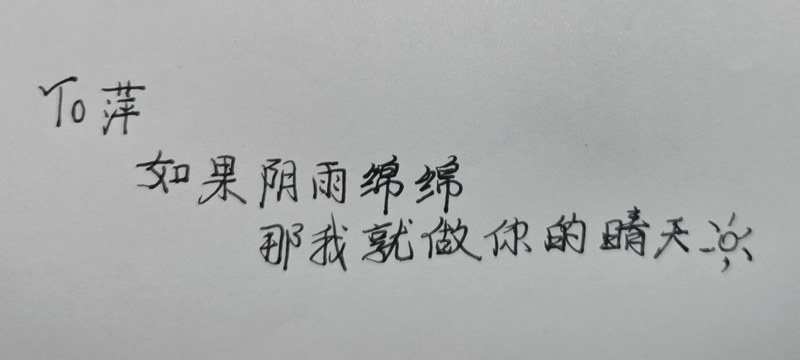 To 萍
如果阴雨绵绵
那我就做你的晴天